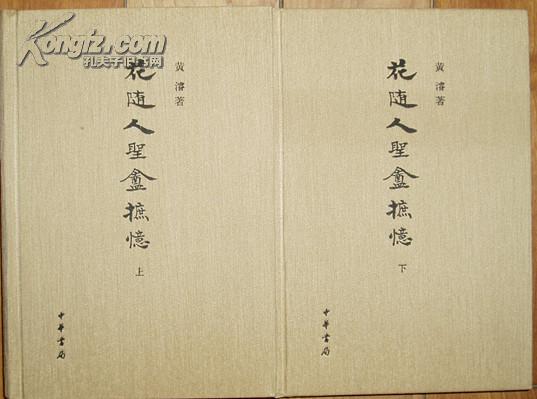 Kongfz.com
孔夫子旧书网
黄濬著
花随人聖盦摭憶
上
中華書局
黄濬著
花随人聖盦摭憶
下
中華書局